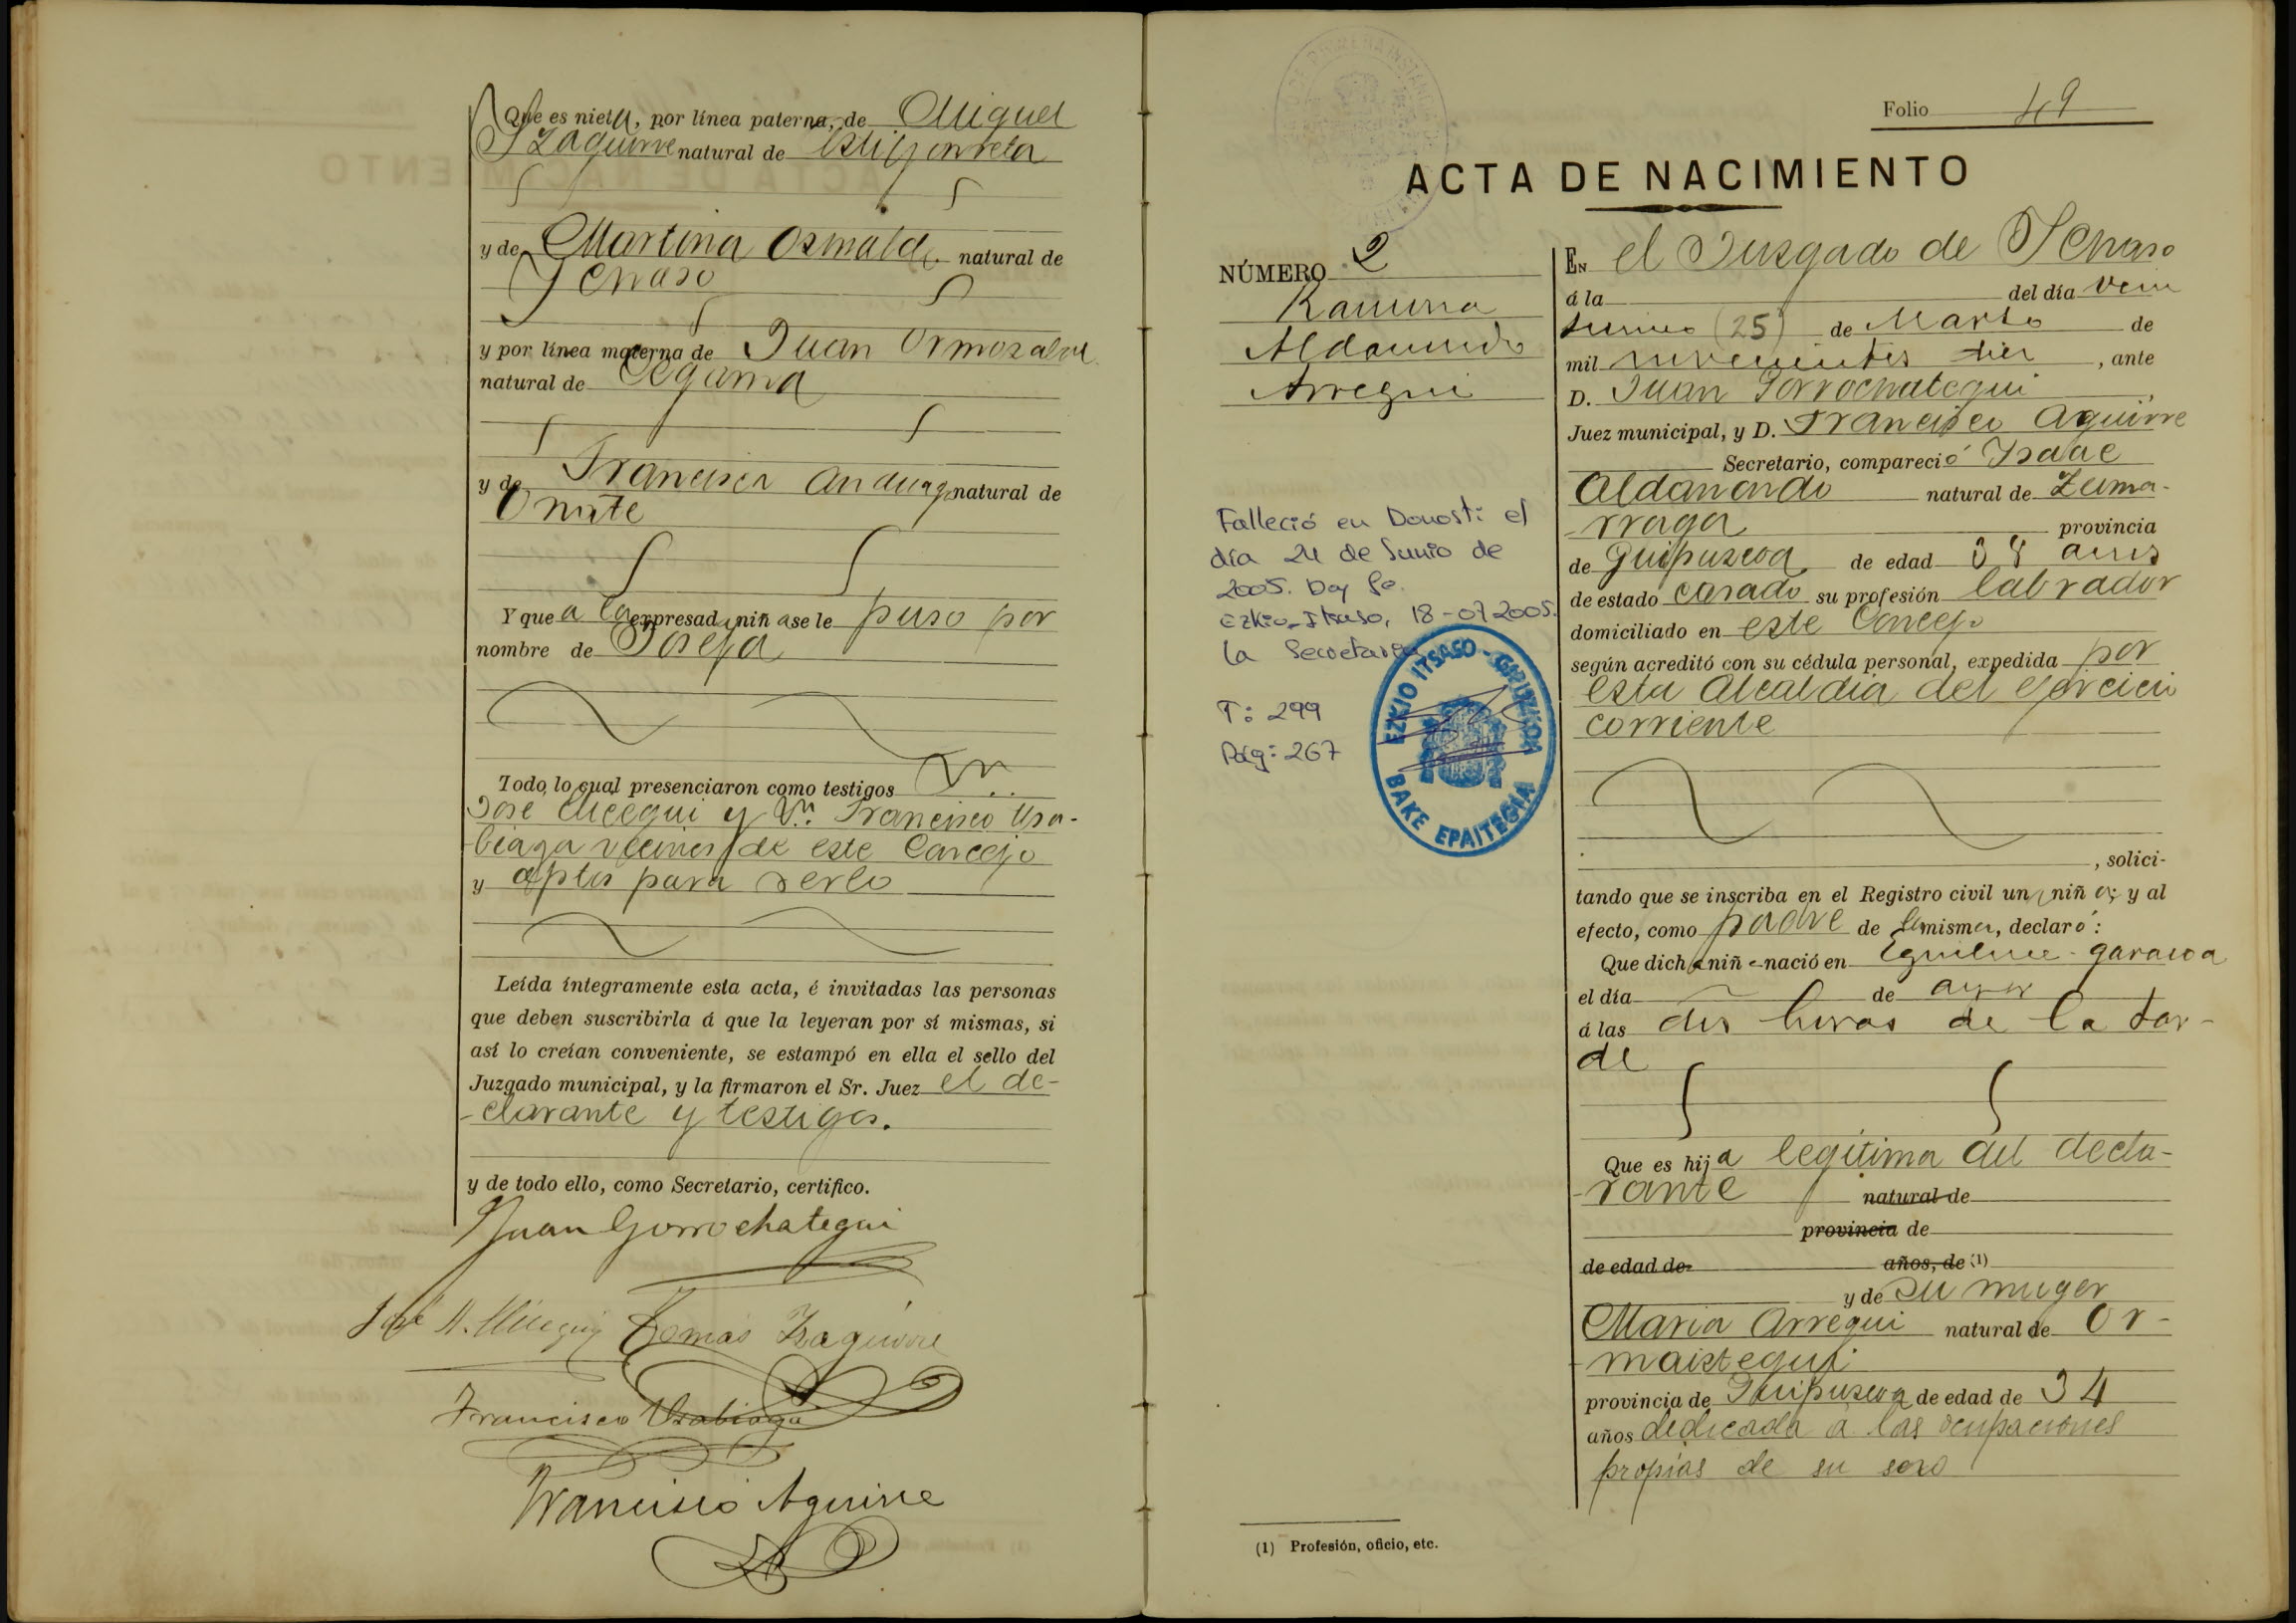 Que es nieta, por línea paterna, de Miguel
Izaguirre natural de Astigarreta
y de Martina Osinalde natural de
Ichaso
y por línea materna de Juan Ormazabal
natural de Cegama
y de Francisca Anduaga natural de
Oñate
Y que a la expresada niña se le puso por
nombre de Josefa
Todo lo cual presenciaron como testigos Dn.
José Múcegui y Dn. Francisco Usa-
biaga vecinos de este Concejo
y aptos para serlo
Leída íntegramente esta acta, é invitadas las personas
que deben suscribirla á que la leyeran por sí mismas, si
así lo creían conveniente, se estampó en ella el sello del
Juzgado municipal, y la firmaron el Sr. Juez el de-
-clarante y testigos.
y de todo ello, como Secretario, certifico.
Juan Gorrochategui
Tomás Izaguirre
Francisco Usabiaga
Francisco Aguirre
Folio 49
ACTA DE NACIMIENTO
NÚMERO 2
Ramona
Aldanondo
Arregui
Falleció en Donosti el
día 24 de Junio de
2005. Doy fe.
Ezkio-Itsaso, 18-07-2005.
La Secretaria
T: 299
Pág: 267
EZKIO ITSASO - GIPUZKOA
BAKE EPAITEGIA
EN el Juzgado de Ichaso
á la del día vein
ticinco (25) de Marzo de
mil novecientos diez, ante
D. Juan Gorrochategui
Juez municipal, y D. Francisco Aguirre
Secretario, compareció Isaac
Aldanondo natural de Zuma-
-rraga provincia
de Guipuzcoa de edad 38 años
de estado casado su profesión labrador
domiciliado en este Concejo
según acreditó con su cédula personal, expedida por
esta Alcaldia del ejercicio
corriente
, solici-
tando que se inscriba en el Registro civil una niña; y al
efecto, como padre de la misma, declaró:
Que dicha niña nació en Eguiluce-garaicoa
el día de ayer
á las dos horas de la tar-
de
Que es hija legítima del decla-
-rante natural de
provincia de
de edad de años, de (1)
y de su muger
Maria Arregui natural de Or-
-maiztegui
provincia de Guipuzcoa de edad de 34
años dedicada a las ocupaciones
propias de su sexo
(1) Profesión, oficio, etc.